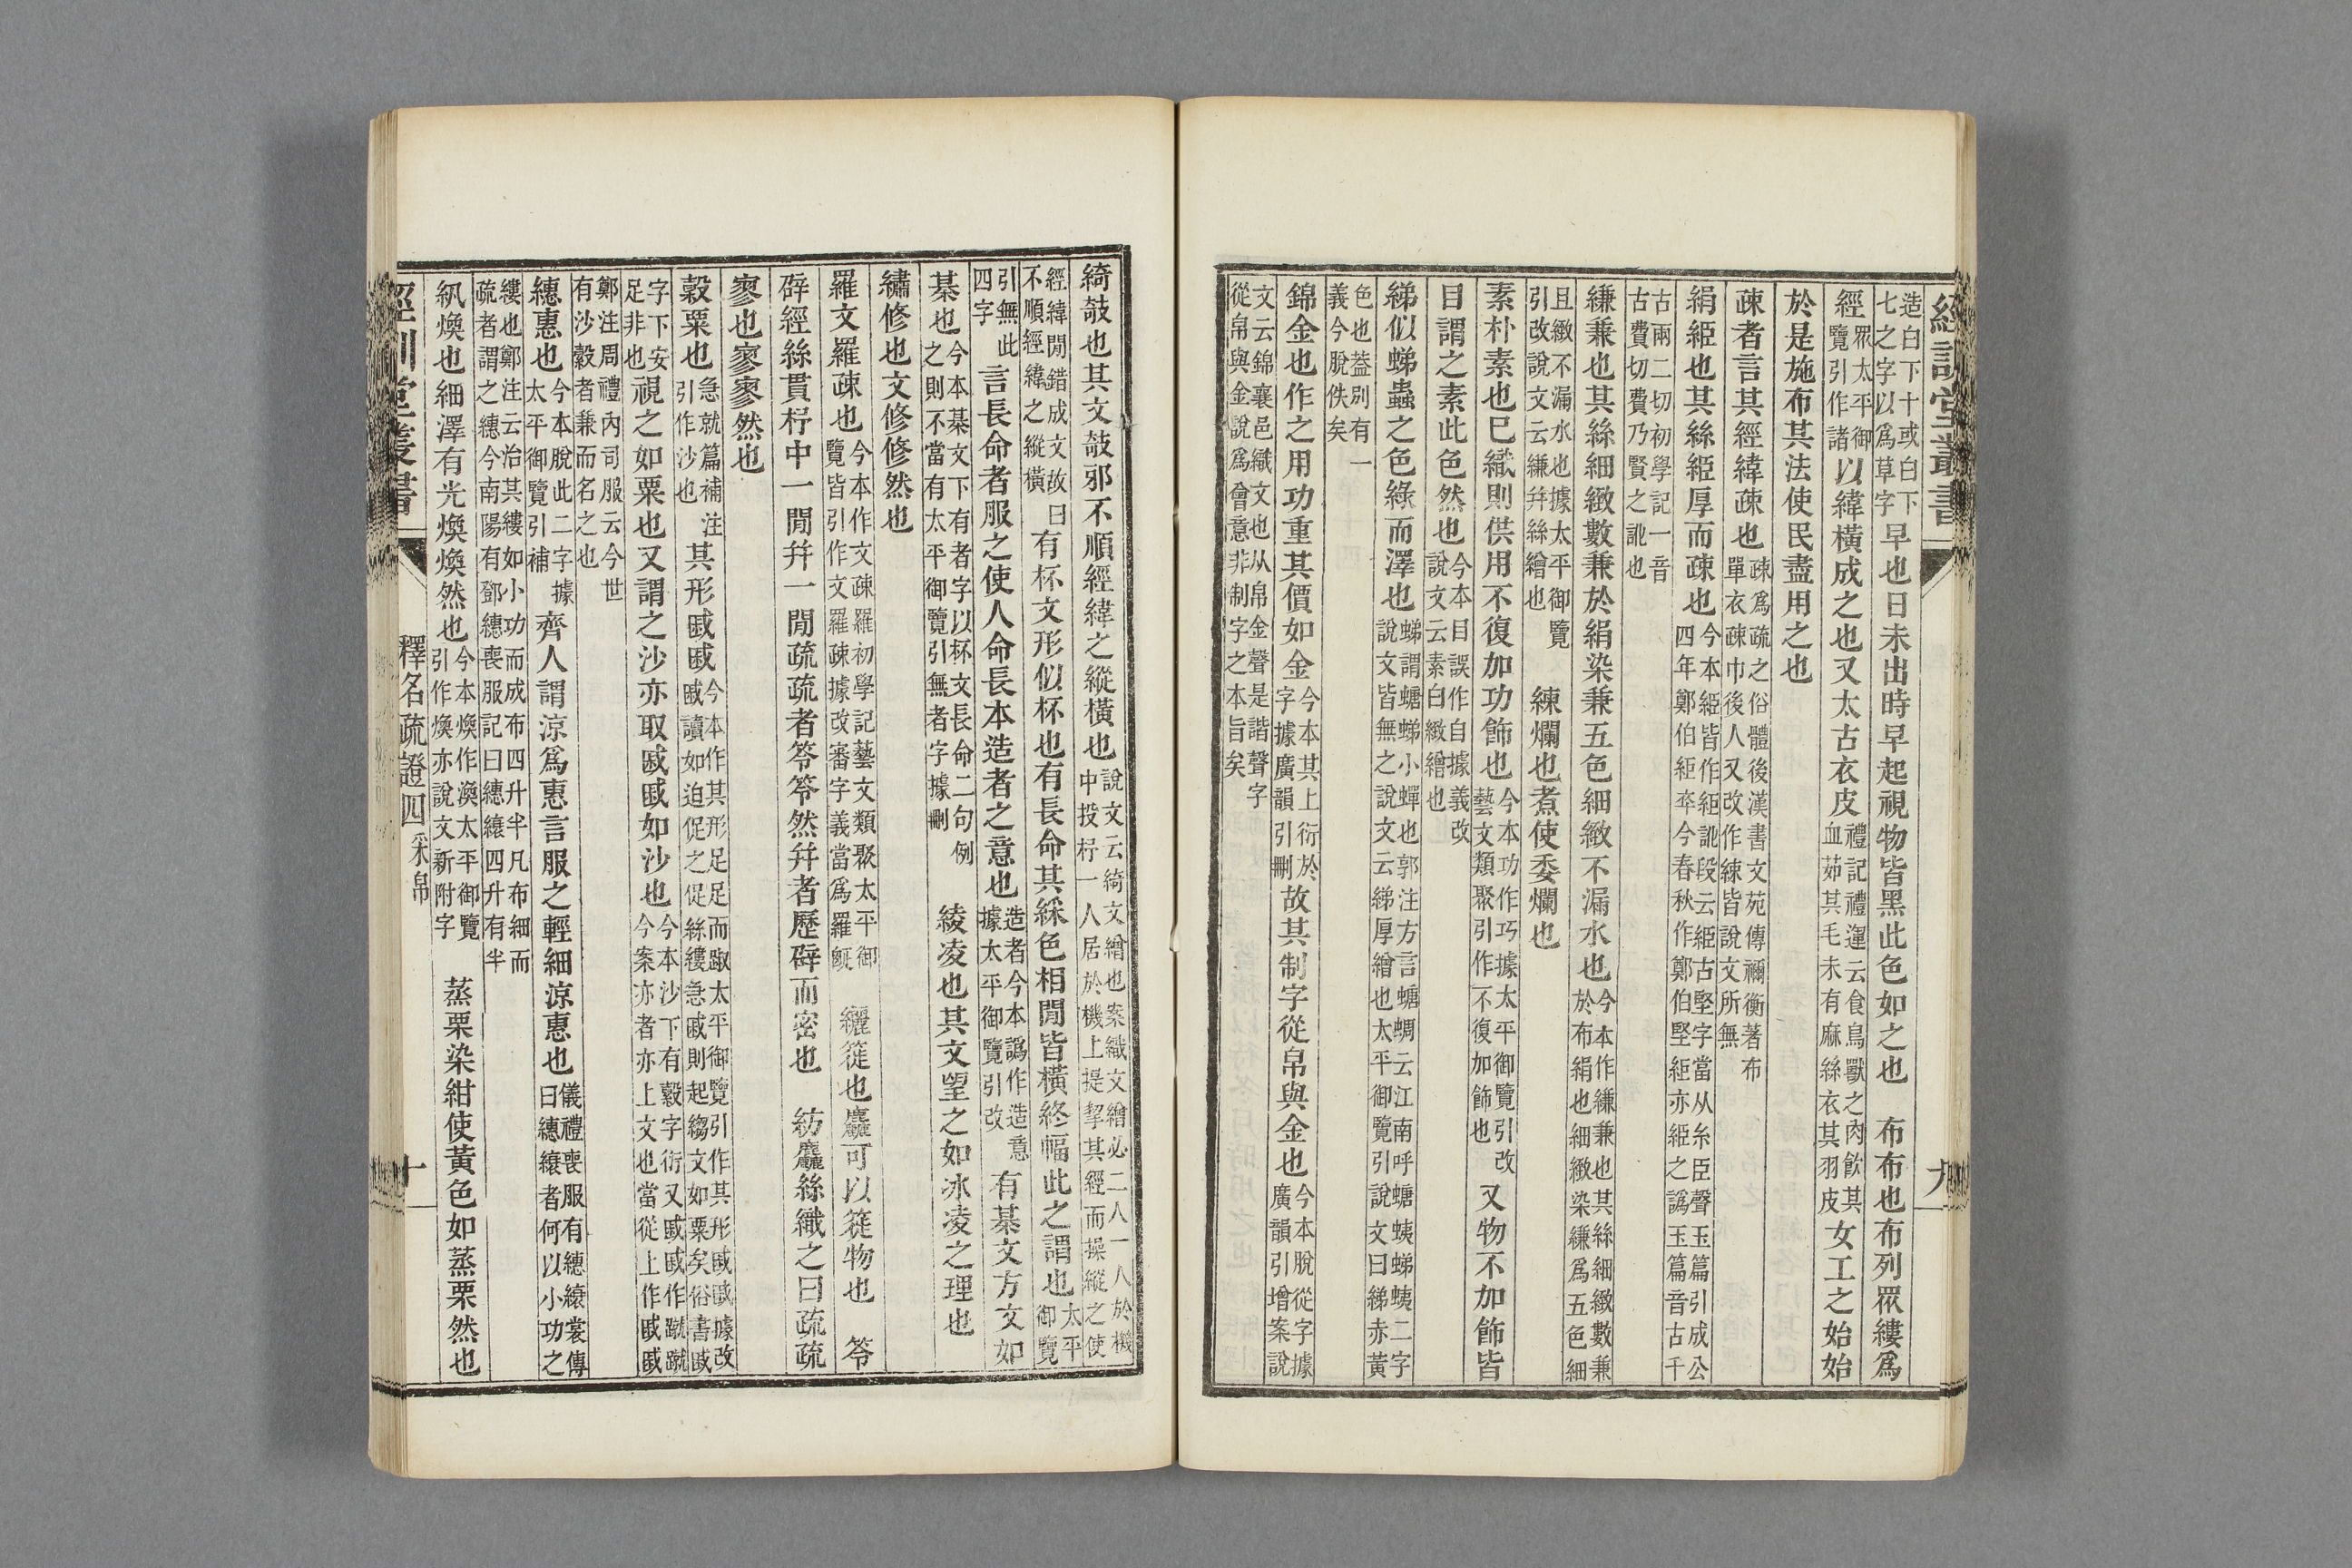 經訓堂叢書
造白下十或白下
七之字以爲草字早也日未出時早起視物皆黑此色如之也　布布也布列眾縷爲
經眾太平御
覽引作諸以緯橫成之也又太古衣皮禮記禮運云食鳥獸之肉飮其
血茹其毛未有麻絲衣其羽皮女工之始始
於是施布其法使民盡用之也
疎者言其經緯疎也疎爲疏之俗體後漢書文苑傳禰衡著布
單衣疎巾後人又改作練皆說文所無
絹䋫也其絲䋫厚而疎也今本䋫皆作絚訛段云䋫古堅字當从糸臣聲玉篇引成公
四年鄭伯䋫卒今春秋作鄭伯堅絚亦䋫之譌玉篇音古千
古兩二切初學記一音
古費切費乃賢之訛也
縑兼也其絲細緻數兼於絹染兼五色細緻不漏水也今本作縑兼也其絲細緻數兼
於布絹也細緻染縑爲五色細
且緻不漏水也據太平御覽
引改說文云縑幷絲繒也　練爛也煮使委爛也
素朴素也已織則供用不復加功飾也今本功作巧據太平御覽引改
藝文類聚引作不復加飾也又物不加飾皆
目謂之素此色然也今本目誤作自據義改
說文云素白緻繒也
綈似蝭蟲之色綠而澤也蝭謂螗蝭小蟬也郭注方言螗蜩云江南呼螗蛦蝭蛦二字
說文皆無之說文云綈厚繒也太平御覽引說文曰綈赤黃
色也葢別有一
義今脫佚矣
錦金也作之用功重其價如金今本其上衍於
字據廣韻引刪故其制字從帛與金也今本脫從字據
廣韻引增案說
文云錦襄邑織文也从帛金聲是諧聲字
從帛與金說爲會意非制字之本旨矣
九
綺攲也其文攲邪不順經緯之縱橫也說文云綺文繒也案織文繒必二人一人於機
中投杼一人居於機上提挈其經而操縱之使
經緯閒錯成文故曰
不順經緯之縱橫有杯文形似杯也有長命其綵色相閒皆橫終幅此之謂也太平
御覽
引無此
四字言長命者服之使人命長本造者之意也造者今本譌作造意
據太平御覽引改有棊文方文如
棊也今本棊文下有者字以杯文長命二句例
之則不當有太平御覽引無者字據刪　綾凌也其文望之如冰凌之理也
繡修也文修修然也
羅文羅疎也今本作文疎羅初學記藝文類聚太平御
覽皆引作文羅疎據改審字義當爲羅甑　纚簁也麤可以簁物也　笭
辟經絲貫杼中一閒幷一閒疏疏者笭笭然幷者歷辟而密也　紡麤絲織之曰疏疏
寥也寥寥然也
縠粟也急就篇補注
引作沙也其形戚戚今本作其形足足而踧太平御覽引作其形戚戚據改
戚讀如迫促之促絲縷急戚則起縐文如粟矣俗書戚
字下安
足非也視之如粟也又謂之沙亦取戚戚如沙也今本沙下有縠字衍又戚戚作蹴蹴
今案亦者亦上文也當從上作戚戚
鄭注周禮內司服云今世
有沙縠者兼而名之也
繐惠也今本脫此二字據
太平御覽引補齊人謂涼爲惠言服之輕細涼惠也儀禮喪服有繐縗裳傳
曰繐縗者何以小功之
縷也鄭注云治其縷如小功而成布四升半凡布細而
疏者謂之繐今南陽有鄧繐喪服記曰繐縗四升有半
紈煥也細澤有光煥煥然也今本煥作渙太平御覽
引作煥亦說文新附字　蒸栗染紺使黃色如蒸栗然也
經訓堂叢書
釋名疏證四采帛
十